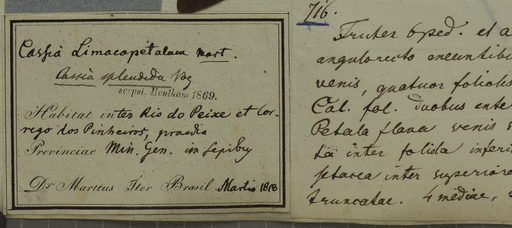 Cassia Limacopetalum mart.
Cassia splendida Vog
scripsi. Bentham 1869.
Habitat inter Rio do Peixe et Cor-
rego dos Pinheiros, praedia
Provinciae Min. Gen. in
Dr Martius Iter Brasil Martio 1818
716.
Frutex 6 ped. et a
angulo recto exeuntibu
venis, quatuor foliolis
Cal. fol. duobus exte
Petala flava venis
ta inter folida inferi
setacea inter superiora
truncatae. 4 mediae,